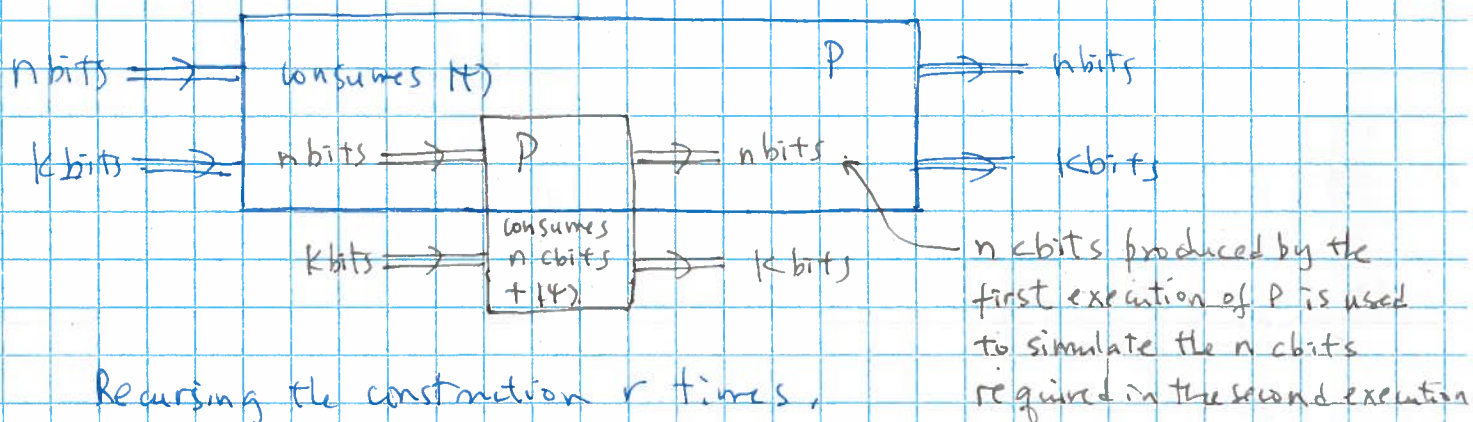 n bits
consumes |ψ⟩
P
n bits
k bits
n bits
P
n bits
k bits
consumes
n cbits
+ |ψ⟩
k bits
k bits
n cbits produced by the
first execution of P is used
to simulate the n cbits
required in the second execution
Recursing the construction r times,